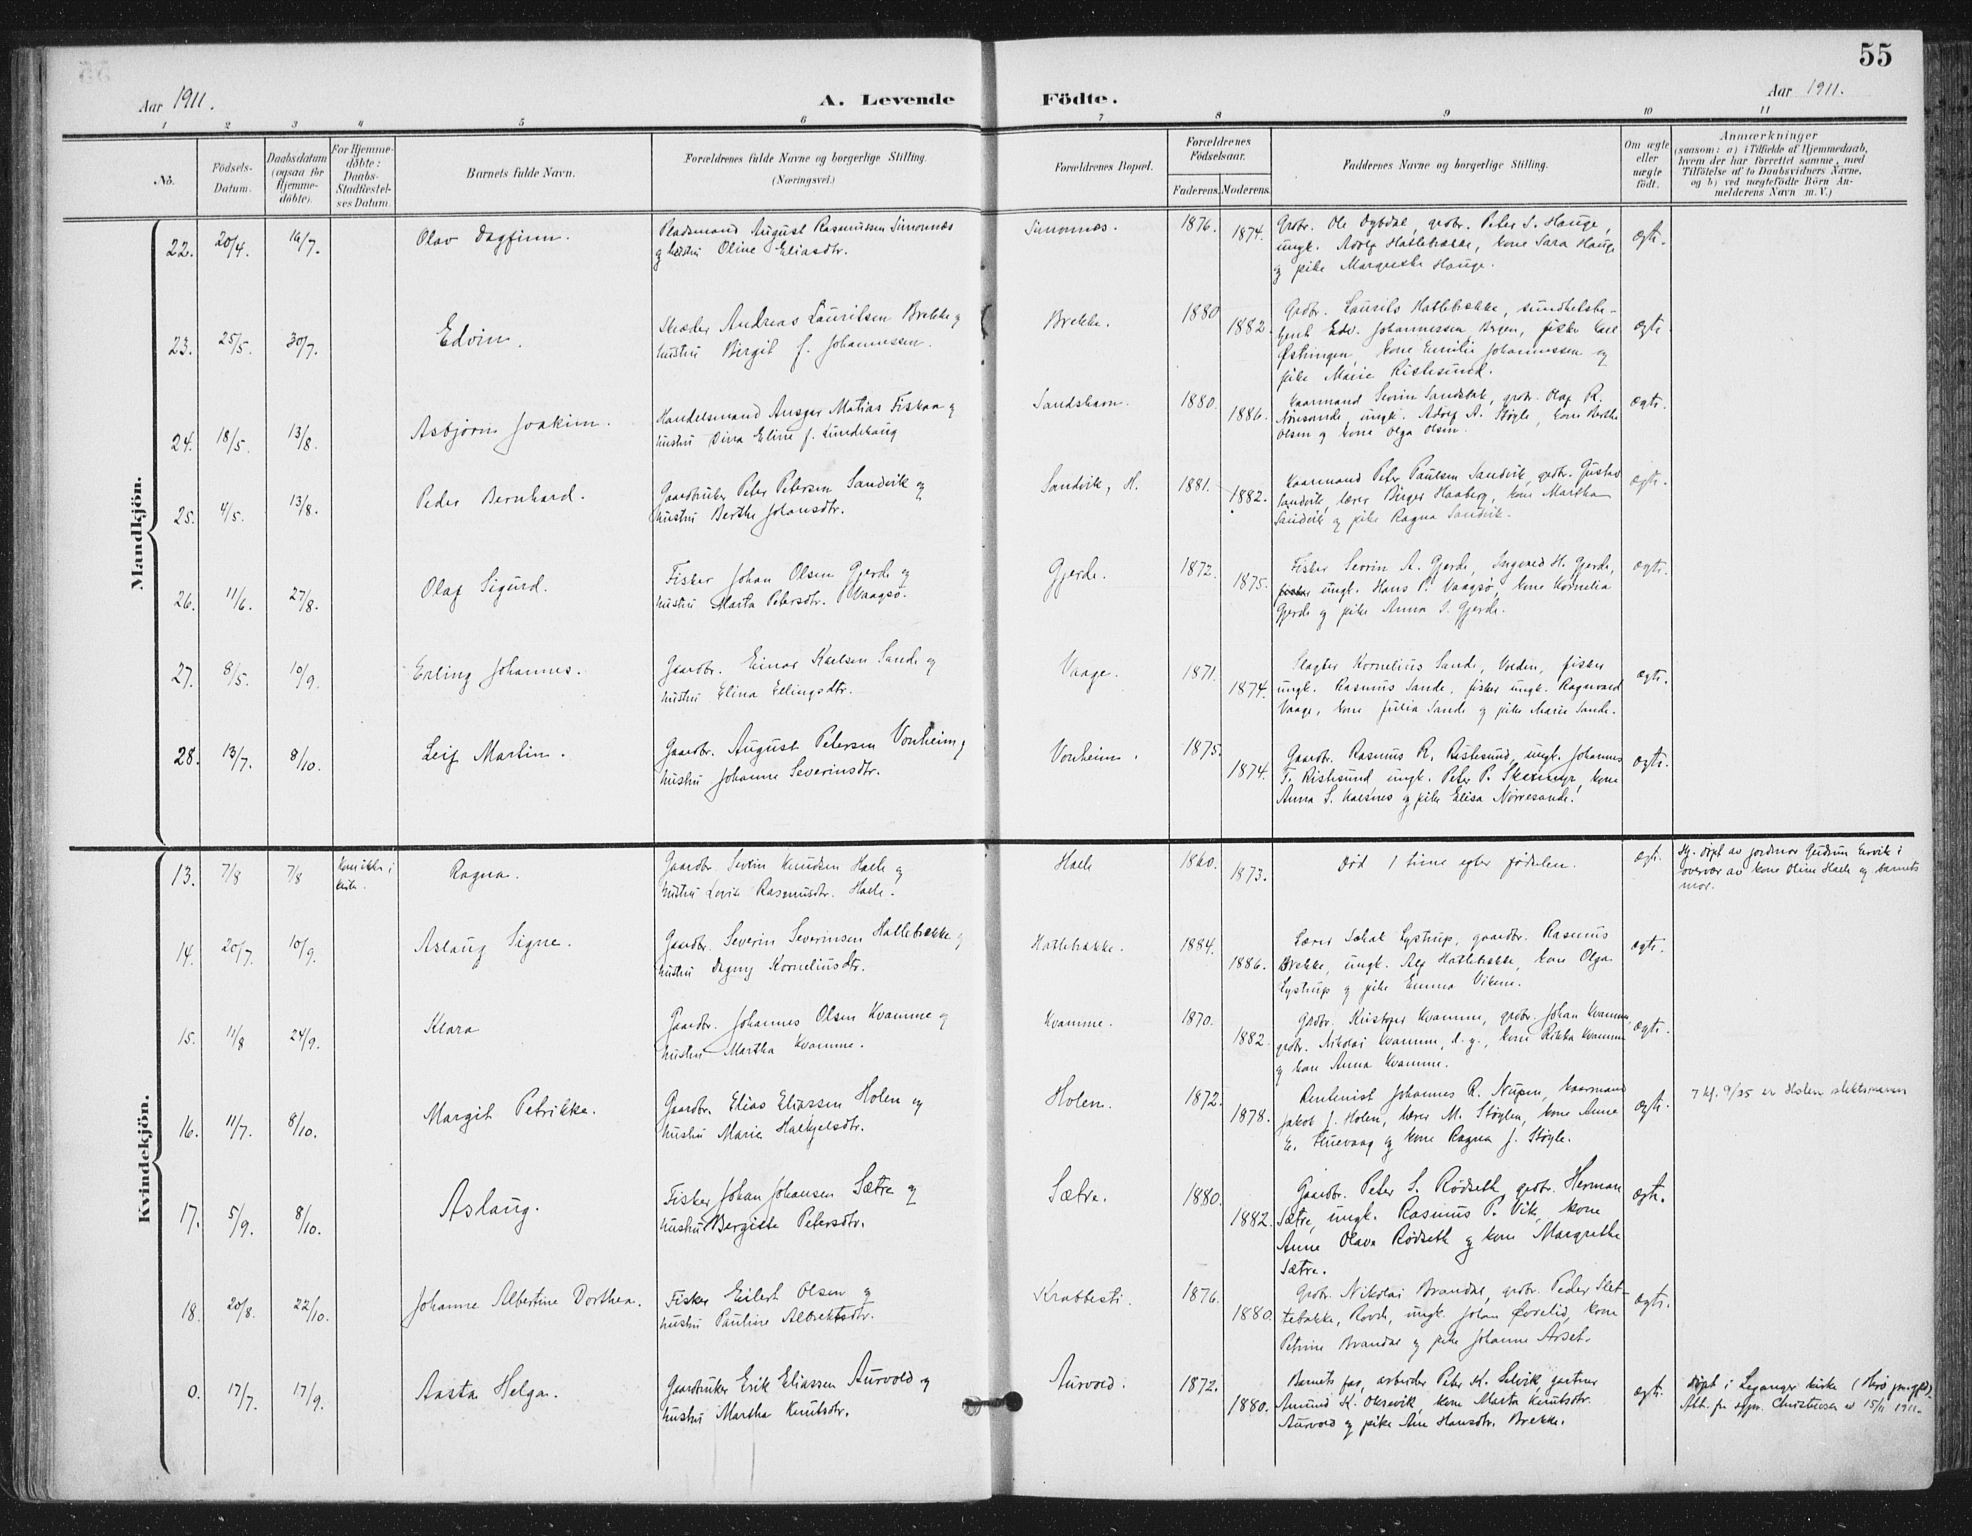 55
Aar 1911.
A. Levende Födte.
Aar 1911.
1 2 3 4 5 6 7 8 9 10 11
No.
Födsels-Datum.
Daabsdatum (ogsaa for Hjemme-döbte).
For Hjemme-döbte: Daabs-Stadfæstel-ses Datum.
Barnets fulde Navn.
Forældrenes fulde Navne og borgerlige Stilling.
(Næringsvei.)
Forældrenes Bopæl.
Forældrenes Födselsaar.
Faderens. Moderens.
Faddernes Navne og borgerlige Stilling.
Om ægte eller uægte födt.
Anmærkninger
(saasom: a) i Tilfælde af Hjemmedaab,
hvem der har forrettet samme, med
Tilföielse af to Daabsvidners Navne,
og b) ved uægtefödte Börn An-
melderens Navn m. V.)
Mandkjön.
22. 20/4. 16/7. Olav Dagfinn. Pladsmand August Rasmussen Simonnæs
og hustru Oline Eliasdtr. Simonnæs. 1876. 1874.
Grdbr. Ole Dybdal, grdbr. Peter S. Hauge,
ungk. Adolf Hatlebrække, kone Sara Hauge
og pike Margrethe Hauge. ægte.
23. 25/5. 30/7. Edvin. Skræder Andreas Lauritsen Brekke og
hustru Birgit f. Johannessen. Brekke. 1880 1882.
Grdbr. Laurits Hatlebrække, sundhetsbe-
tjent Edv. Johannessen Bergen, fisker
kone Emilie Johannessen og
pike Marie Ristesund. ægte.
24. 18/5. 13/8. Asbjørn Joakim. Handelsmand Ansgar Matias Fiskaa og
hustru Dina Eline f. Lundehaug Sandshavn. 1880. 1886.
kaarmand Severin grdbr. Olaf R.
Nøresande ungk. Adolf A. Støyle, kone Berthe
Olsen og kone Olga Olsen. ægte.
25. 4/5. 13/8. Peder Bernhard. Gaardbruker Peter Petersen Sandvik og
hustru Berthe Johansdtr. Sandvik, H. 1881. 1882.
kaarmand Peter Paulsen Sandvik, grdbr. Gustav
Sandvik, lærer Birger Haaberg, kone Martha
Sandvik og pike Ragna Sandvik. ægte.
26. 11/6. 27/8. Olaf Sigurd. Fisker Johan Olsen Gjerde og
hustru Marta Petersdtr. Vaagsø. Gjerde. 1872. 1875.
Fisker Severin A. Gjerde, Ingvald H. Gjerde,
fisker ungk. Hans P. Vaagsø, kone Kornelia
Gjerde og pike Anna S. Gjerde. ægte.
27. 8/5. 10/9. Erling Johannes. Gaardbr. Einar Karlsen Sande og
hustru Elina Ellingsdtr. Vaage. 1871. 1874.
Slagter Kornelius Sande, Volden, fisker
ungk. Rasmus Sande, fisker ungk. Ragnvald
Vaage, kone Julia Sande og pike Marie Sande. ægte.
28. 13/7. 8/10. Leif Martin. Gaardbr. August Petersen Vonheim og
hustru Johanne Severinsdtr. Vonheim. 1875. 1874.
Gaardbr. Rasmus R. Ristesund, ungk. Johannes
T. Ristesund ungk. Peter P. kone
Anna S. Kalsnes og pike Elisa Nørresande. ægte.
Kvindekjön.
13. 7/8 7/8 Kom ikke i kirke. Ragna. Gaardbr. Severin Knudsen Hæle og
hustru Lovise Rasmusdtr. Hæle. Hæle 1860. 1873.
Død 1 time efter fødselen. ægte.
Hj. døpt av jordmor Gudrun Ervik i
overvær av kone Oline Hæle og barnets
mor.
14. 20/7. 10/9. Aslaug Signe. Gaardbr. Severin Severinsen Hatlebrække og
hustru Dagny Korneliusdtr. Hatlebrække. 1884. 1886.
Lærer Lystrup, gaardbr. Rasmus
Brekke, ungk. Alf Hatlebrekke, kone Olga
Lystrup og pike Emma Vikene. ægte.
15. 11/8 24/9. Klara Gaardbr. Johannes Olsen Kvamme og
hustru Martha Kvamme. Kvamme. 1870. 1882.
Grdbr. Kristofer Kvamme, grdbr. Johan Kvamme,
grdbr. Nikolai Kvamme, d. y., kone Rikka Kvamme
og kone Anna Kvamme. ægte.
16. 11/7. 8/10. Margit Petrikke. Gaardbr. Elias Eliassen Holen og
hustru Marie Hallkjelsdtr. Holen. 1872. 1878.
Rentenist Johannes R. Nupen, kaarmand
Jakob J. Holen, lærer M. Støylen, kone Anne
E. Thuevaag og kone Ragna J. Støyle. ægte.
7 kf. 9/25 er Holen slektsnavn
17. 5/9. 8/10. Aslaug. Fisker Johan Johansen Sætre og
hustru Bergitte Petersdtr. Sætre. 1880. 1882.
Gaardbr. Peter S. Rødseth, grdbr. Herman
Sætre, ungk. Rasmus P. Vik, kone
Anne Olava Rødseth og kone Margrethe
Sætre. ægte.
18. 20/8. 22/10. Johanne Albertine Dorthea. Fisker Eilert Olsen og
hustru Pauline Albrektsdtr. Krabbesti. 1876. 1880.
Grdbr. Nikolai Brandal, grdbr. Peder Slet-
tebakke, Rovde, ungk. Johan Øvrelid, kone
Petrine Brandal og pike Johanne Arset. ægte.
0. 17/7. 17/9. Aasta Helga. Gaardbruker Erik Eliassen Aurvold og
hustru Martha Knutsdtr. Aurvold. 1872. 1880.
Barnets far, arbeider Peter K. Selvik, gartner
Amund K. Oksavik, kone Marta Knutsdtr.
Aurvold og pike Ane Hansdtr. Brekke. ægte.
Døpt i Leganger kirke (Herø prgjld)
Att. fra sogpr. Christensen av 15/11 1911.